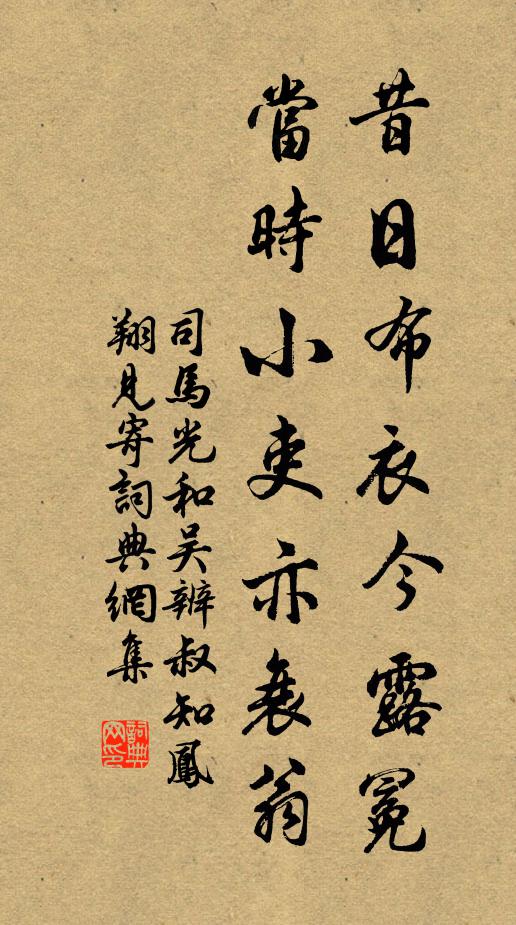 昔日布衣今露冕
當時小吏亦衰翁
司馬光和吴辨叔知鳳
翔見寄詞典網集
詞典网印